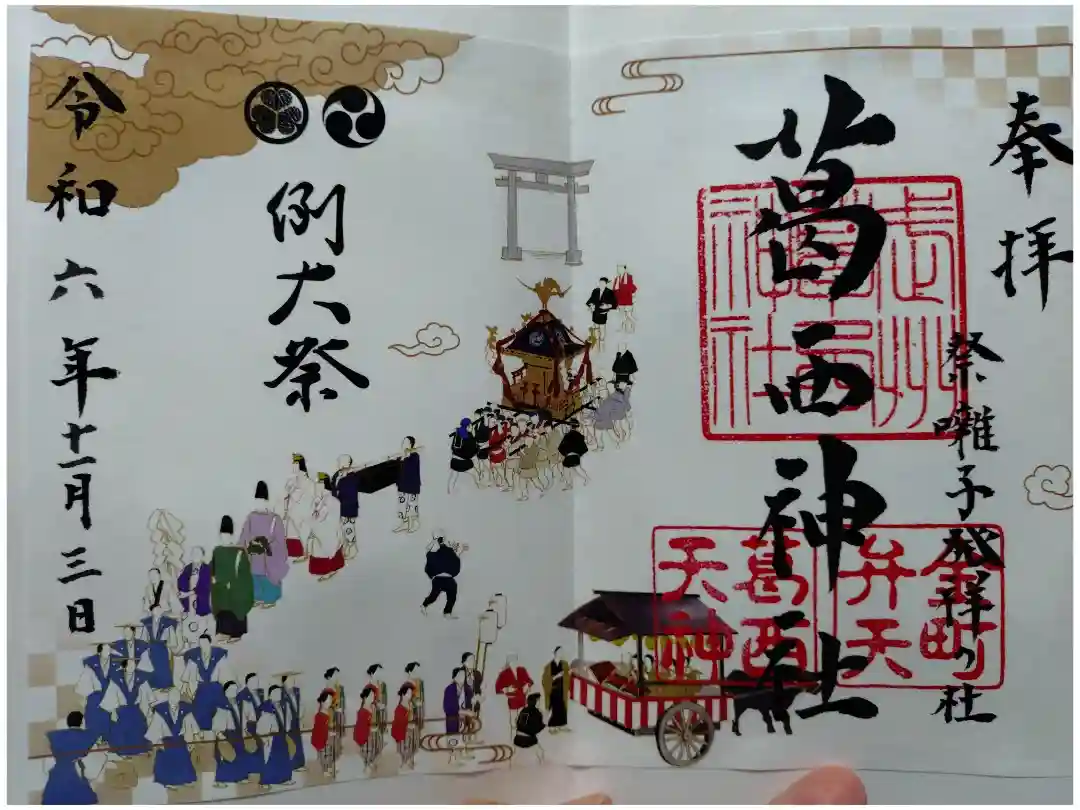 奉拝
祭囃子発祥の社
葛西神社
武州
葛西
神社
金町
弁天
葛西
天神
例大祭
令和六年十一月三日